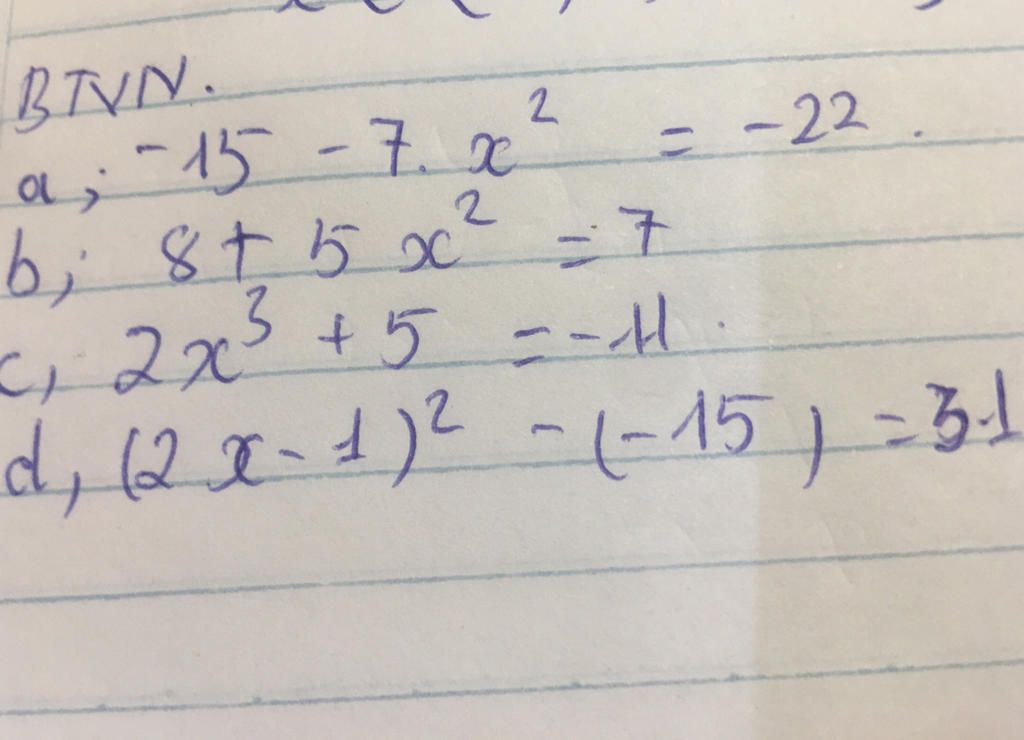 BTVN.
a; -15 - 7. x² = -22.
b; 8 + 5 x² = 7
c, 2x³ + 5 = -11.
d, (2x - 1)² - (-15) = 31